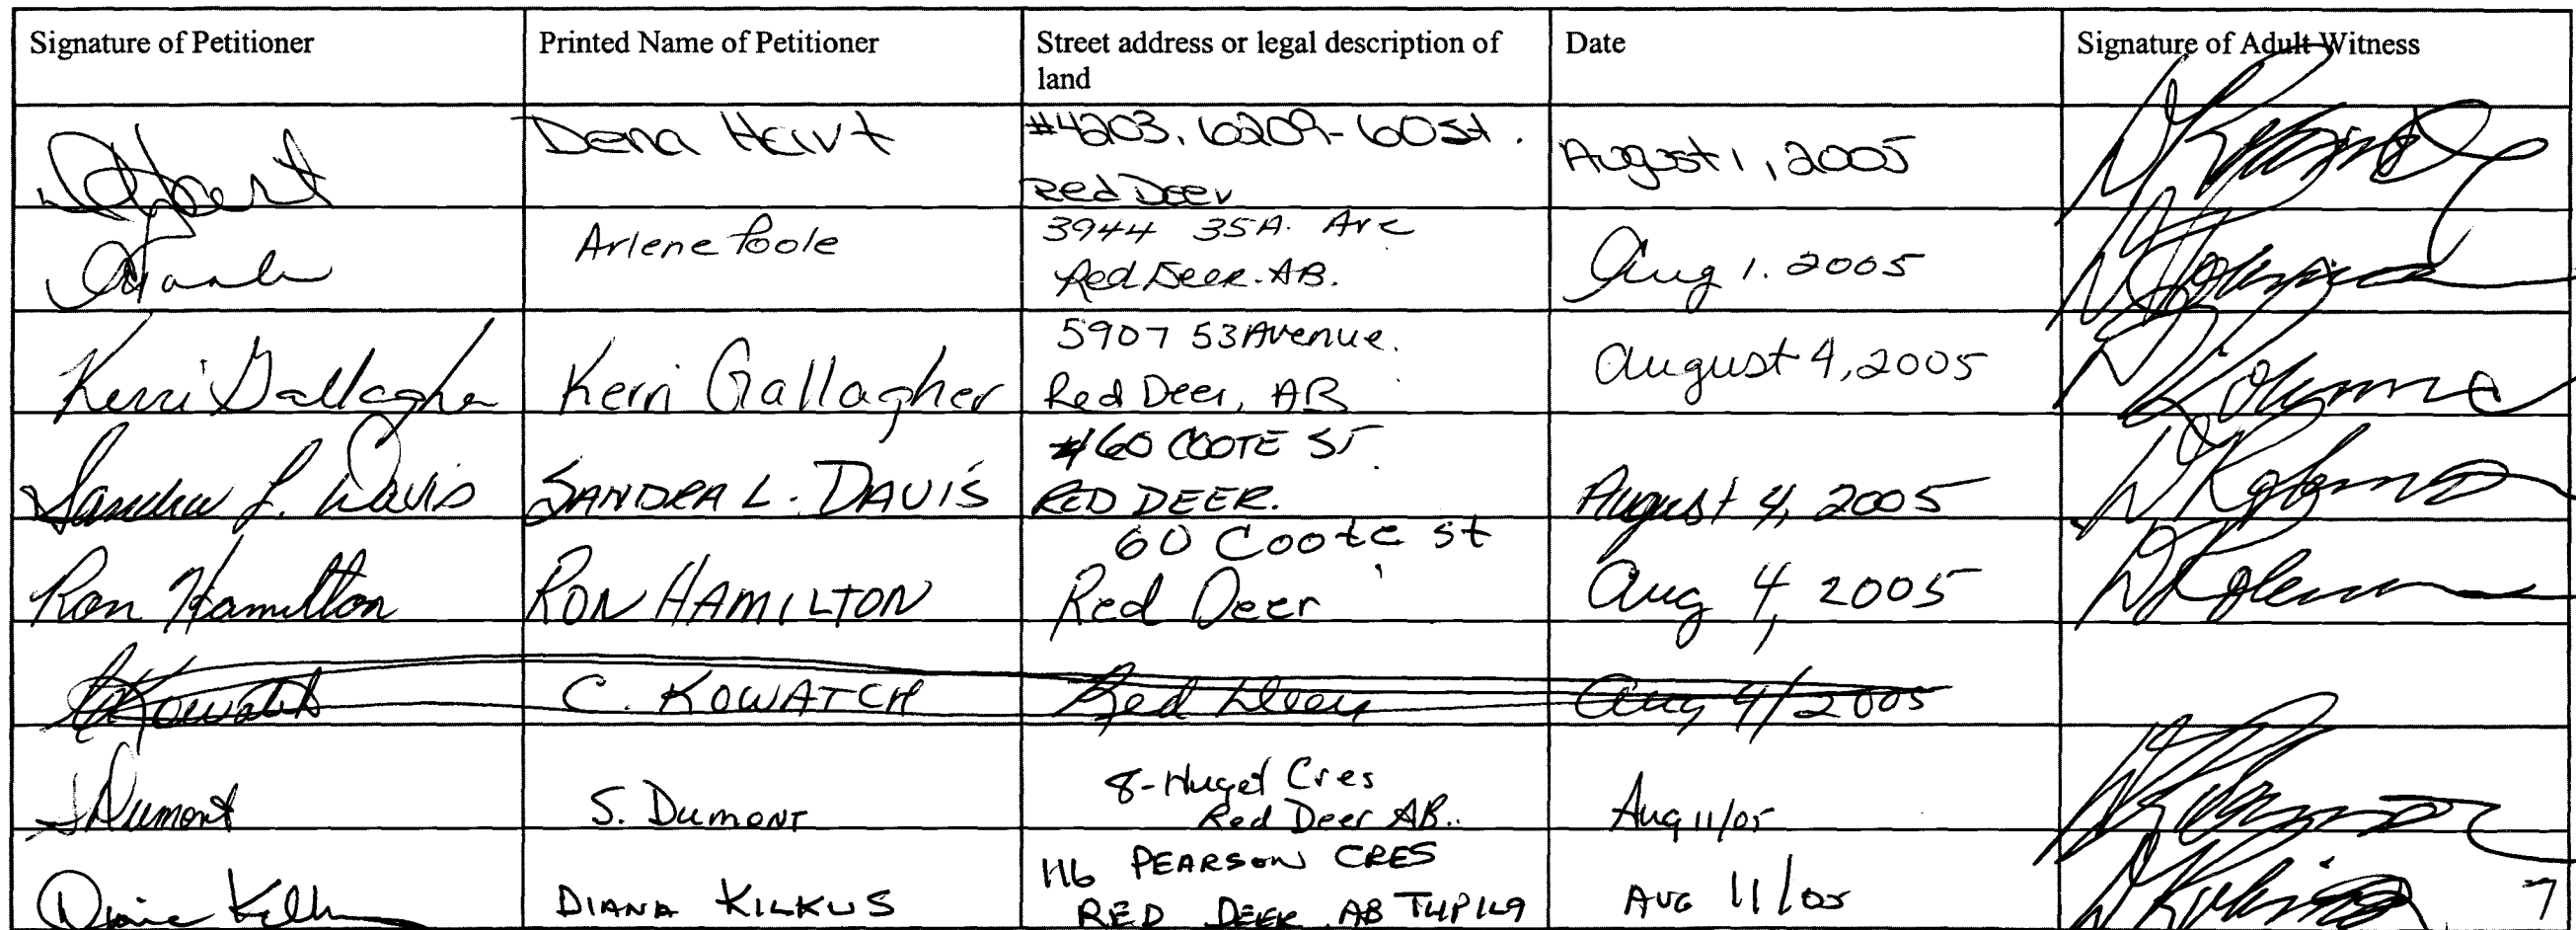 Signature of Petitioner
Printed Name of Petitioner
Street address or legal description of
land
Date
Signature of Adult Witness
Dena Hart
#4203, 6209-60st.
Red Deer
August 1, 2005
Arlene Poole
3944 35A. Ave
Red Deer. AB.
Aug 1. 2005
Kerri Gallagher
Kerri Gallagher
5907 53 Avenue.
Red Deer, AB
August 4, 2005
Sandra L. Davis
SANDRA L. DAVIS
#60 COOTE ST.
RED DEER.
August 4, 2005
Ron Hamilton
RON HAMILTON
60 Coote st
Red Deer
Aug 4, 2005
C Kowatch
C. KOWATCH
Red Deer
Aug 4/2005
S Dumont
S. DUMONT
8-Huget Cres
Red Deer AB..
Aug 11/05
DIANA KILKUS
116 PEARSON CRES
RED DEER AB T4P1L9
AUG 11/05
7